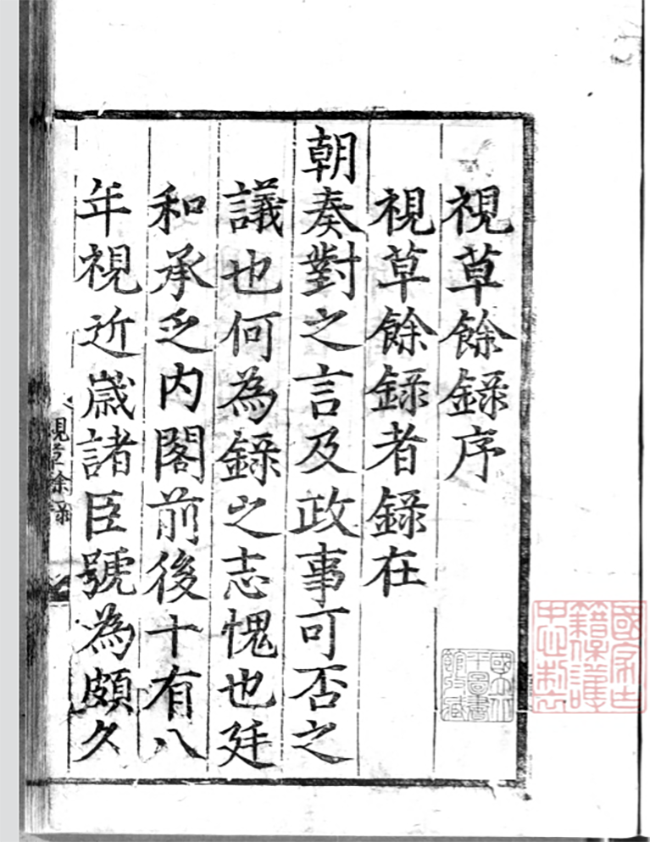 視草餘錄序
視草餘錄者錄在
朝奏對之言及政事可否之
議也何為錄之志愧也廷
和承乏内閣前後十有八
年視近嵗諸臣號為頗久
視草餘錄
國立北
平圖書
館收藏